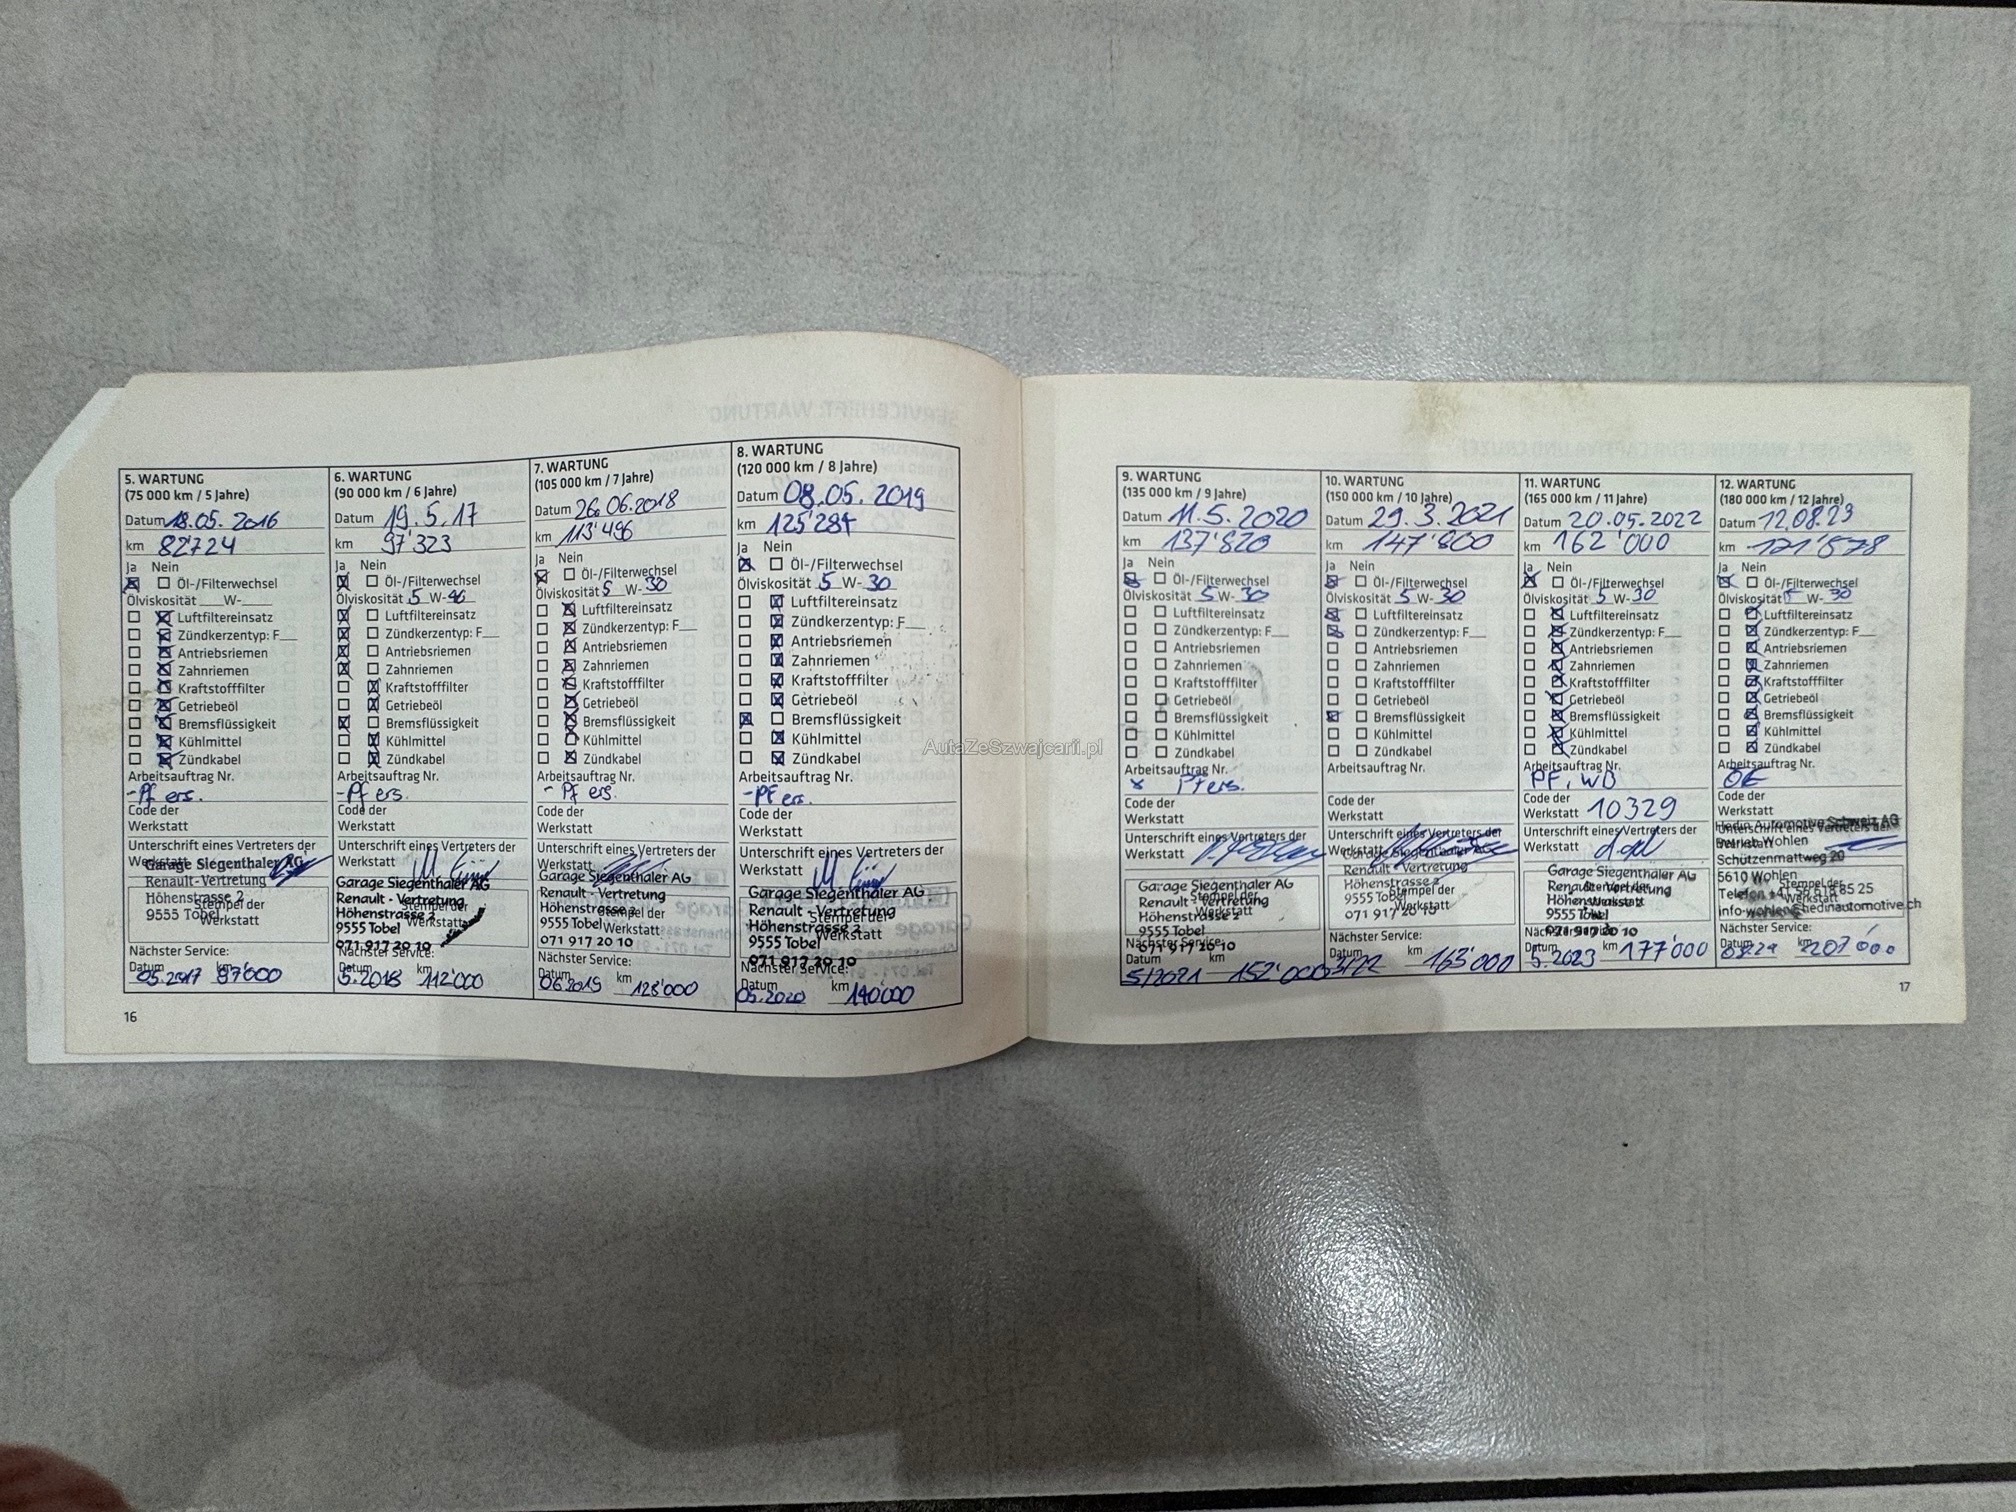 5. WARTUNG
(75 000 km / 5 Jahre)
Datum 18.05.2016
km 82724
Ja Nein
Öl-/Filterwechsel
Ölviskosität W-
Luftfiltereinsatz
Zündkerzentyp: F
Antriebsriemen
Zahnriemen
Kraftstofffilter
Getriebeöl
Bremsflüssigkeit
Kühlmittel
Zündkabel
Arbeitsauftrag Nr.
-Pf ers.
Code der
Werkstatt
Unterschrift eines Vertreters der
Werkstatt
Garage Siegenthaler AG
Renault-Vertretung
Höhenstrasse 2
Stempel der
9555 Tobel
Werkstatt
Nächster Service:
Datum km
05.2017 97'000
6. WARTUNG
(90 000 km / 6 Jahre)
Datum 19.5.17
km 97'323
Ja Nein
Öl-/Filterwechsel
Ölviskosität 5 W-40
Luftfiltereinsatz
Zündkerzentyp: F
Antriebsriemen
Zahnriemen
Kraftstofffilter
Getriebeöl
Bremsflüssigkeit
Kühlmittel
Zündkabel
Arbeitsauftrag Nr.
-Pf ers.
Code der
Werkstatt
Unterschrift eines Vertreters der
Werkstatt
Garage Siegenthaler AG
Renault - Vertretung
Stempel der
Höhenstrasse 2
Werkstatt
9555 Tobel
071 917 20 10
Nächster Service:
Datum km
5.2018 112'000
7. WARTUNG
(105 000 km / 7 Jahre)
Datum 26.06.2018
km 113'496
Ja Nein
Öl-/Filterwechsel
Ölviskosität 5 W-30
Luftfiltereinsatz
Zündkerzentyp: F
Antriebsriemen
Zahnriemen
Kraftstofffilter
Getriebeöl
Bremsflüssigkeit
Kühlmittel
Zündkabel
Arbeitsauftrag Nr.
- Pf ers.
Code der
Werkstatt
Unterschrift eines Vertreters der
Werkstatt
Garage Siegenthaler AG
Renault - Vertretung
Höhenstrasse 2
Stempel der
9555 Tobel
Werkstatt
071 917 20 10
Nächster Service:
Datum km
06.2019 128'000
8. WARTUNG
(120 000 km / 8 Jahre)
Datum 08.05.2019
km 125'284
Ja Nein
Öl-/Filterwechsel
Ölviskosität 5 W-30
Luftfiltereinsatz
Zündkerzentyp: F
Antriebsriemen
Zahnriemen
Kraftstofffilter
Getriebeöl
Bremsflüssigkeit
Kühlmittel
Zündkabel
Arbeitsauftrag Nr.
-PF er.
Code der
Werkstatt
Unterschrift eines Vertreters der
Werkstatt
Garage Siegenthaler AG
Renault - Vertretung
Stempel der
Höhenstrasse 2
Werkstatt
9555 Tobel
071 917 20 10
Nächster Service:
Datum km
05.2020 140'000
16
9. WARTUNG
(135 000 km / 9 Jahre)
Datum 11.5.2020
km 137'820
Ja Nein
Öl-/Filterwechsel
Ölviskosität 5 W-30
Luftfiltereinsatz
Zündkerzentyp: F
Antriebsriemen
Zahnriemen
Kraftstofffilter
Getriebeöl
Bremsflüssigkeit
Kühlmittel
Zündkabel
Arbeitsauftrag Nr.
x Pf ers.
Code der
Werkstatt
Unterschrift eines Vertreters der
Werkstatt
Garage Siegenthaler AG
Stempel der
Renault - Vertretung
Werkstatt
Höhenstrasse 2
9555 Tobel
071 917 20 10
Nächster Service:
Datum km
5/2021 152'000
10. WARTUNG
(150 000 km / 10 Jahre)
Datum 29.3.2021
km 147'800
Ja Nein
Öl-/Filterwechsel
Ölviskosität 5 W-30
Luftfiltereinsatz
Zündkerzentyp: F
Antriebsriemen
Zahnriemen
Kraftstofffilter
Getriebeöl
Bremsflüssigkeit
Kühlmittel
Zündkabel
Arbeitsauftrag Nr.
Code der
Werkstatt
Unterschrift eines Vertreters der
Werkstatt
Garage Siegenthaler AG
Renault - Vertretung
Höhenstrasse 2
Stempel der
9555 Tobel
Werkstatt
071 917 20 10
Nächster Service:
Datum km
3/22 163'000
11. WARTUNG
(165 000 km / 11 Jahre)
Datum 20.05.2022
km 162'000
Ja Nein
Öl-/Filterwechsel
Ölviskosität 5 W-30
Luftfiltereinsatz
Zündkerzentyp: F
Antriebsriemen
Zahnriemen
Kraftstofffilter
Getriebeöl
Bremsflüssigkeit
Kühlmittel
Zündkabel
Arbeitsauftrag Nr.
PF, WB
Code der
Werkstatt 10329
Unterschrift eines Vertreters der
Werkstatt
Garage Siegenthaler AG
Stempel der
Renault - Vertretung
Werkstatt
Höhenstrasse 2
9555 Tobel
071 917 20 10
Nächster Service:
Datum km
5.2023 177'000
12. WARTUNG
(180 000 km / 12 Jahre)
Datum 12.08.23
km 171'578
Ja Nein
Öl-/Filterwechsel
Ölviskosität 5 W-30
Luftfiltereinsatz
Zündkerzentyp: F
Antriebsriemen
Zahnriemen
Kraftstofffilter
Getriebeöl
Bremsflüssigkeit
Kühlmittel
Zündkabel
Arbeitsauftrag Nr.
Code der
Werkstatt
Hedin Automotive Schweiz AG
Unterschrift eines Vertreters der
Werkstatt
Betrieb Wohlen
Schützenmattweg 20
5610 Wohlen
Stempel der
Telefon +41 56 618 85 25
Werkstatt
info-wohlen@hedinautomotive.ch
Nächster Service:
Datum km
207'000
17
AutaZeSzwajcarii.pl